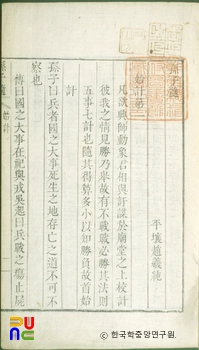 孫子髓
平壤趙羲純
始計第一
凡欲興師動衆君相與計謀於廟堂之上校計
彼我之情見勝乃擧故有不戰戰必勝其法則
五事七計也隨其得算多小以知勝負故首始
計
孫子曰兵者國之大事死生之地存亡之道不可不
察也
傳曰國之大事在祀與戎吳起曰兵戰之塲止屍
孫子髓 始計
ⓒ 한국학중앙연구원.